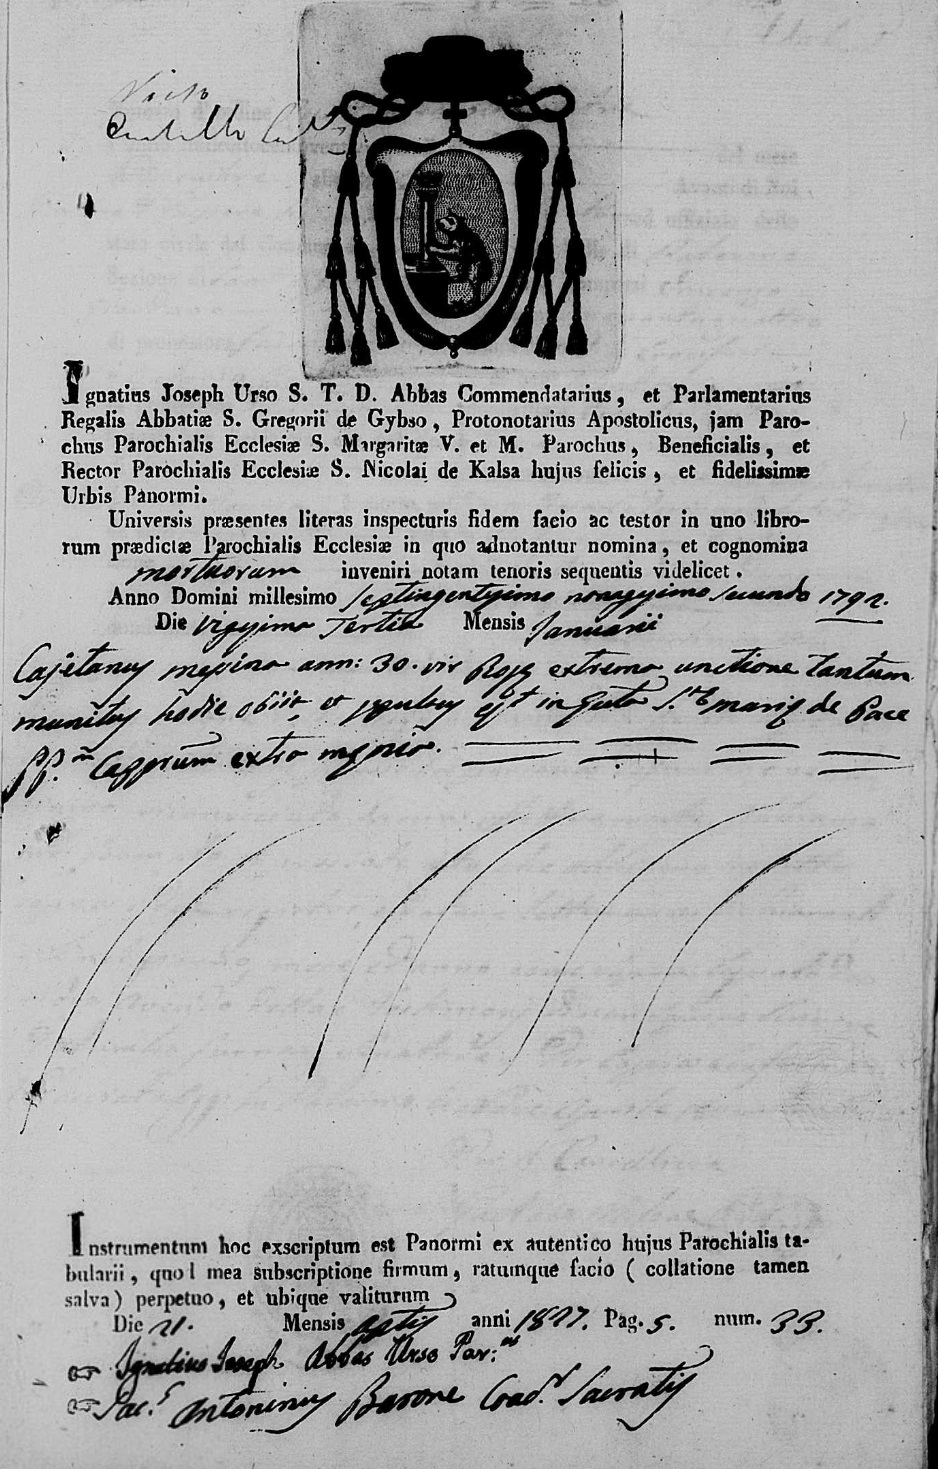 Visto
Ignatius Joseph Urso S. T. D. Abbas Commendatarius, et Parlamentarius
Regalis Abbatiæ S. Gregorii de Gybso, Protonotarius Apostolicus, jam Paro-
chus Parochialis Ecclesiæ S. Margaritæ V. et M. Parochus, Beneficialis, et
Rector Parochialis Ecclesiæ S. Nicolai de Kalsa hujus felicis, et fidelissimæ
Urbis Panormi.
Universis præsentes literas inspecturis fidem facio ac testor in uno libro-
rum prædictæ Parochialis Ecclesiæ in quo adnotantur nomina, et cognomina
mortuorum inveniri notam tenoris sequentis videlicet.
Anno Domini millesimo septingentesimo nonagesimo secundo 1792.
Die vigesima tertia Mensis Januarii
Cajetanus messina ann: 30. vir Rosæ extrema unctione tantum
munitus hodie obiit, et sepultus est in S. mariæ de Pace
PP. Capp.rum extra mænia.
Instrumentum hoc exscriptum est Panormi ex autentico hujus Parochialis ta-
bularii, quod mea subscriptione firmum, ratumque facio ( collatione tamen
salva ) perpetuo, et ubique valiturum
Die 21. Mensis anni 1827. Pag. 5. num. 33.
Ignatius Joseph Abbas Urso Par:us
Sac.r Antoninus Barone Coad.r Sacratis